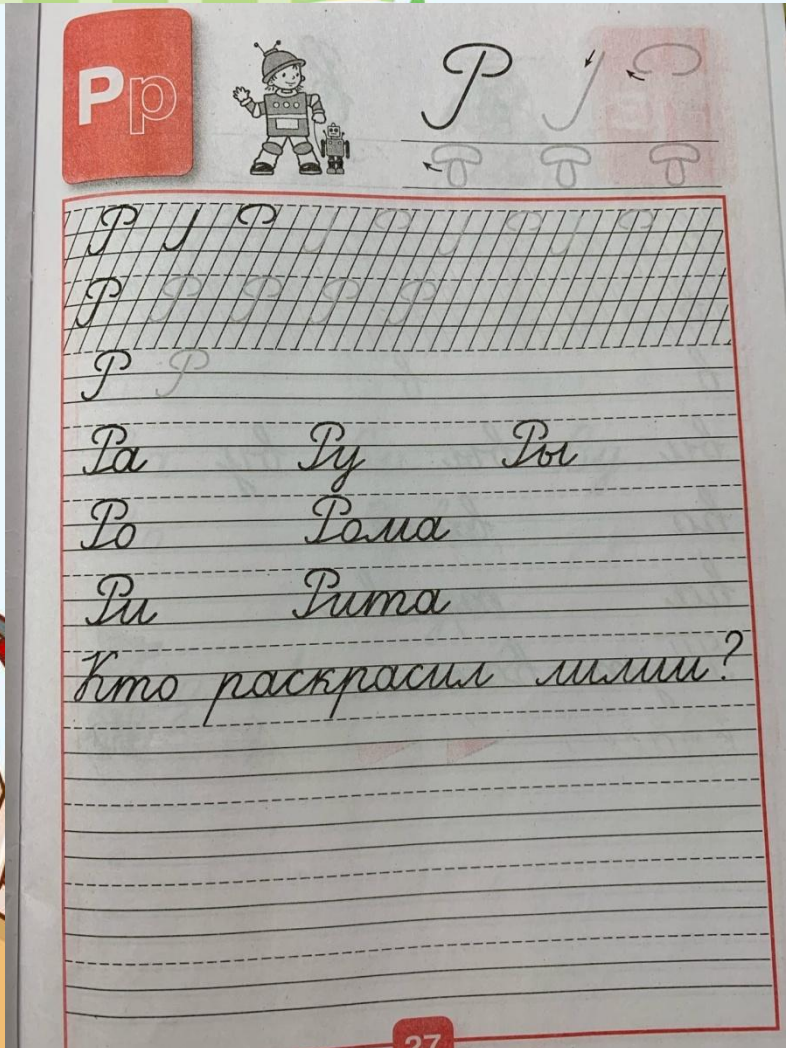 Рр
Р
Р Р
Р Р Р Р Р
Р Р
Ра Ру Ры
Ро Рома
Ри Рита
Кто раскрасил лилии?
27